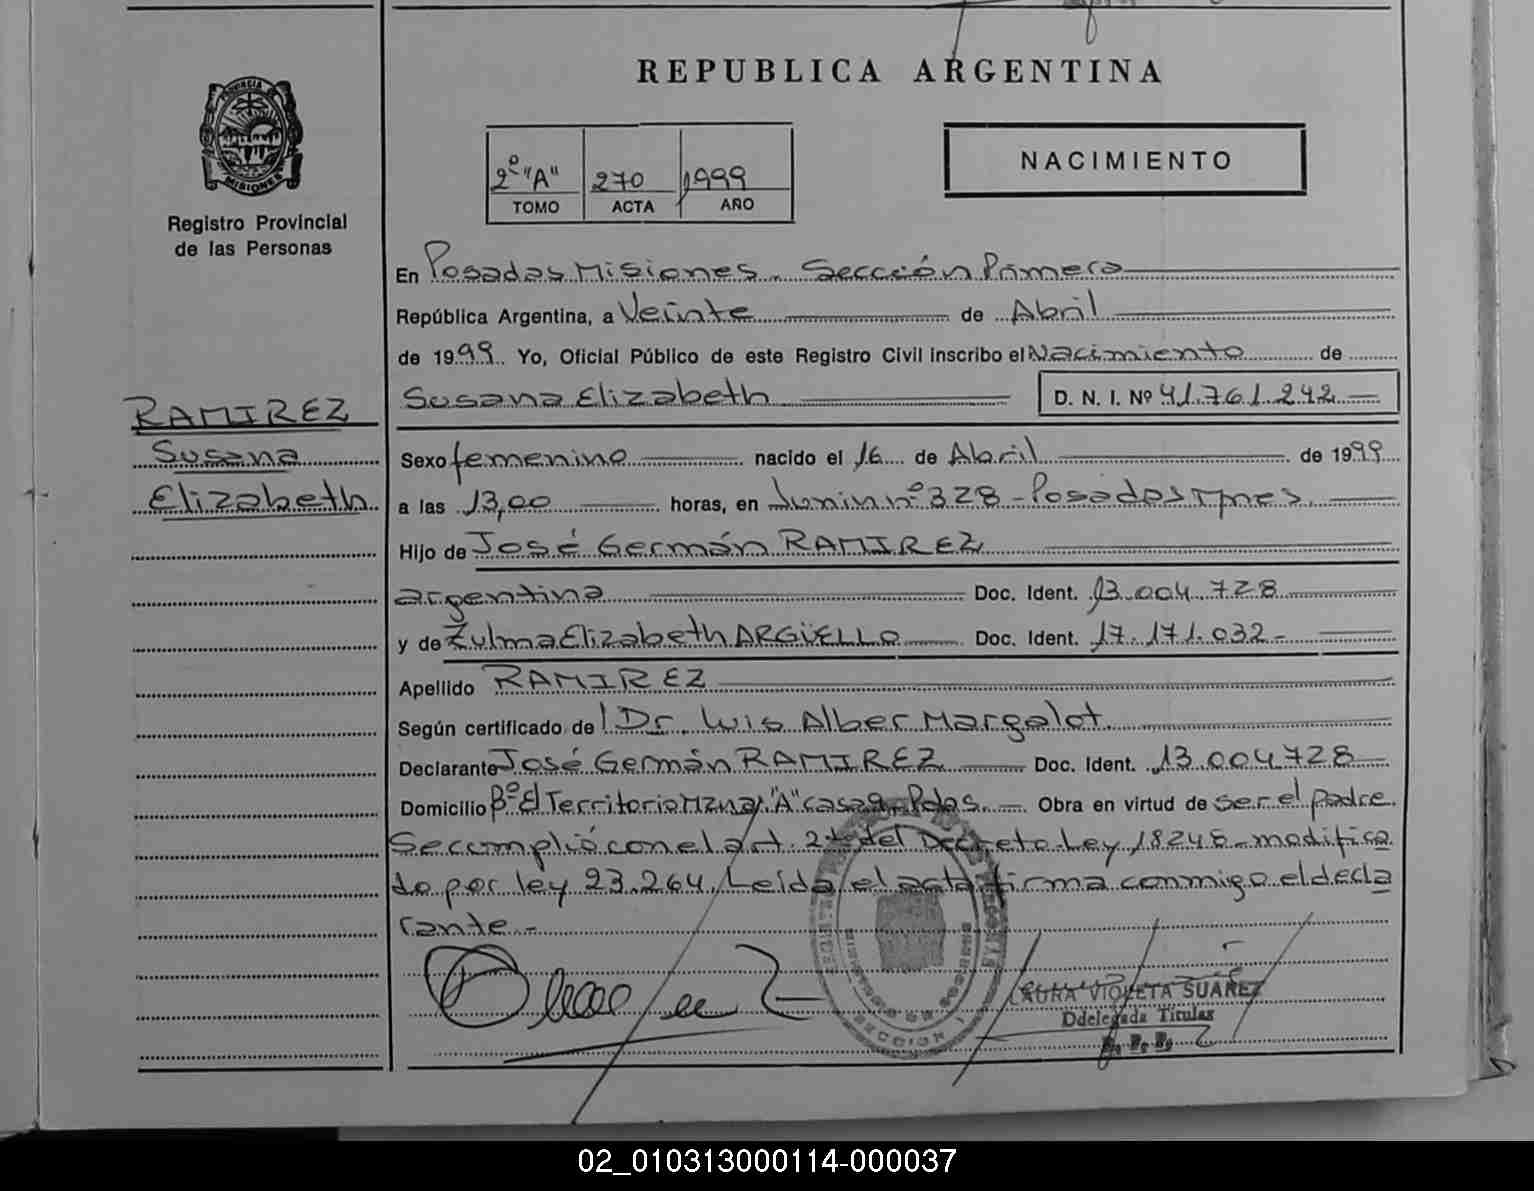 REPUBLICA ARGENTINA
PROVINCIA
MISIONES
Registro Provincial
de las Personas
2º "A" 270 1999
TOMO ACTA AÑO
NACIMIENTO
En Posadas Misiones. Sección Primera
República Argentina, a Veinte de Abril
de 1999 Yo, Oficial Público de este Registro Civil inscribo el Nacimiento de
Susana Elizabeth D. N. I. Nº 41.761.242
RAMIREZ
Susana
Elizabeth
Sexo femenino nacido el 16 de Abril de 1999
a las 13,00 horas, en Junin nº 328 - Posadas Mnes.
Hijo de José Germán RAMIREZ
argentina Doc. Ident. 13.004.728
y de Zulma Elizabeth ARGÜELLO Doc. Ident. 17.171.032-
Apellido RAMIREZ
Según certificado del Dr. Luis Alber Margalot
Declarante José Germán RAMIREZ Doc. Ident. 13.004728
Domicilio Bº El Territorio Mzna "A" casa 9 - Pdas. Obra en virtud de ser el padre.
Se cumplió con el art. 2º del Decreto-Ley 18248 - modifica
do por ley 23.264. Leída el acta firma conmigo el decla
rante.-
SECCION 1
LAURA VIOLETA SUAREZ
Ddelegada Titular
R. P. P.
02_010313000114-000037